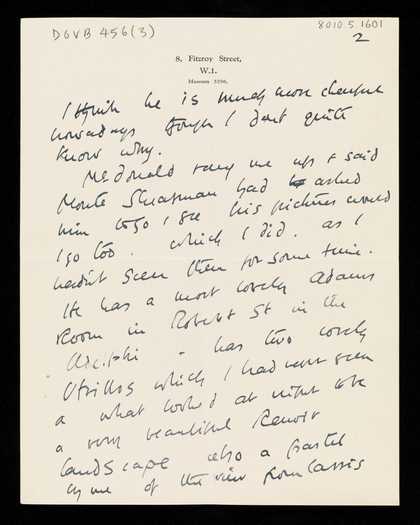 DGVB 456(3)
8010.5.1601
2
8, Fitzroy Street,
W.1.
Museum 3296.
I think he is much more cheerful
nowadays though I dont quite
know why.
McDonald rang me up & said
Monte Shearman had asked
him to go & see his pictures would
I go too. which I did. as I
hadnt seen them for some time.
He has a most lovely Adams
Room in Robert St in the
Adelphi - has two lovely
Utrillos which I had never seen
& what looked at night to be
a very beautiful Renoir
landscape also a pastel
by me of the view from Cassis